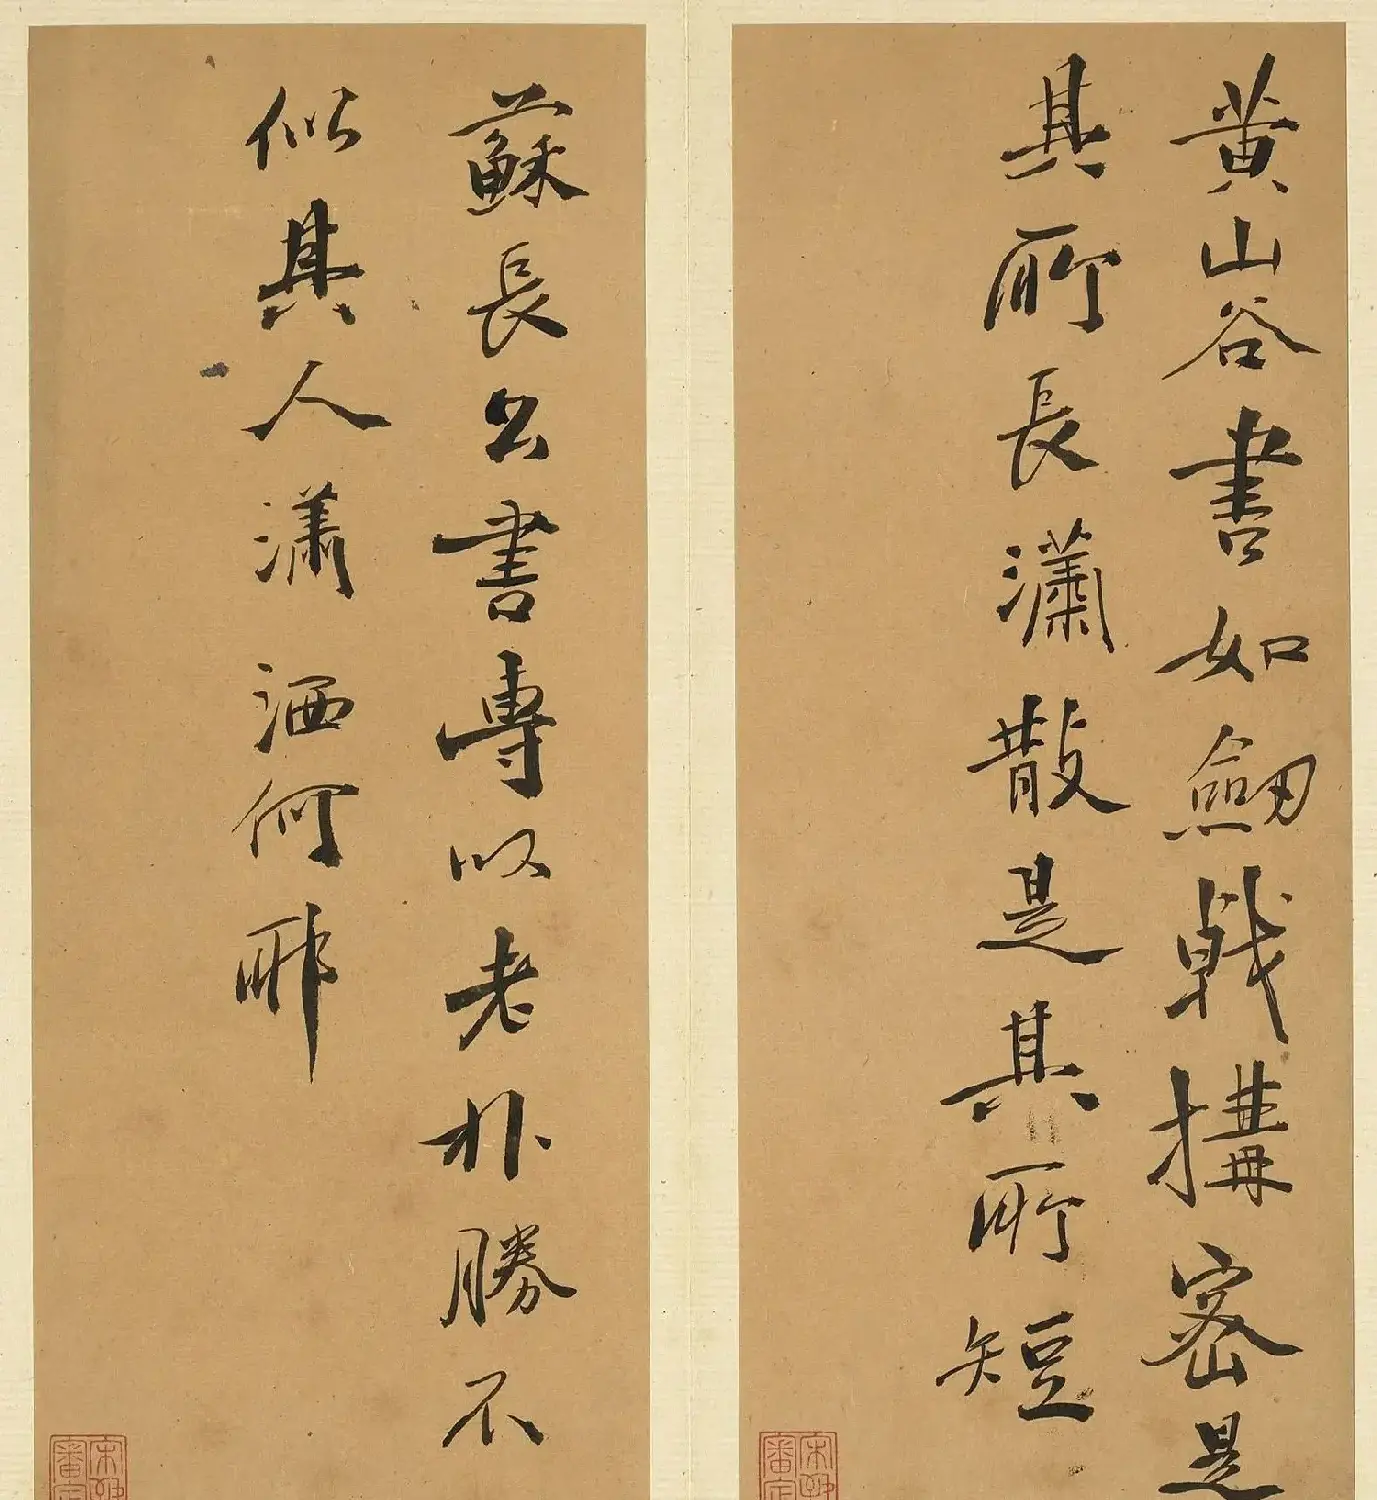 黄山谷書如劒戟搆密是
其所長瀟散是其所短
蘇長公書專以老朴勝不
似其人瀟洒何耶